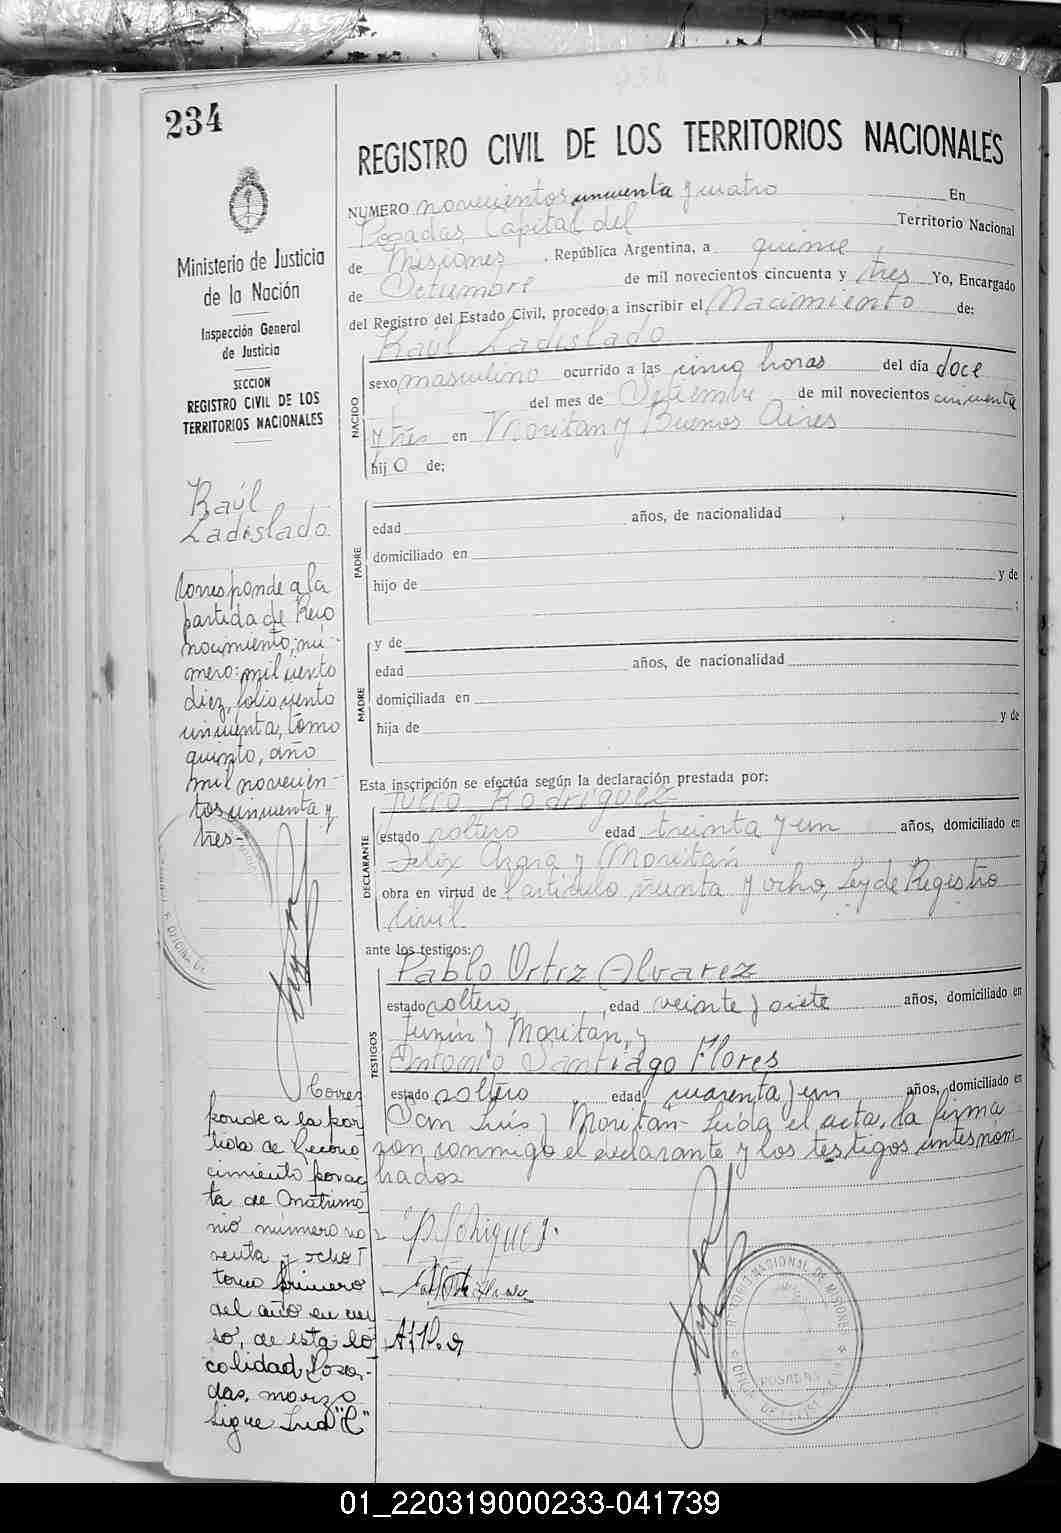 234
REGISTRO CIVIL DE LOS TERRITORIOS NACIONALES
Ministerio de Justicia
de la Nación
Inspección General
de Justicia
SECCION
REGISTRO CIVIL DE LOS
TERRITORIOS NACIONALES
Raúl
Ladislado
Corresponde a la
partida de Reco
nocimiento, nú-
mero: mil ciento
diez, folio ciento
cincuenta, tomo
quinto, año
mil novecien-
tos cincuenta y
tres-
Corres
ponde a la par
tida de Recono
cimiento por ac
ta de Matrimo
nio numero no
venta y ocho T
tomo primero
del año en cur
so, de esta lo
calidad Posa-
das, marzo
Sigue Ind "C"
NUMERO novecientos cincuenta y cuatro En
Posadas, Capital del Territorio Nacional
de Misiones, República Argentina, a quince
de Setiembre de mil novecientos cincuenta y tres Yo, Encargado
del Registro del Estado Civil, procedo a inscribir el Nacimiento de:
NACIDO
Raúl Ladislado
sexo masculino ocurrido a las cinco horas del día doce
del mes de Setiembre de mil novecientos cincuenta
y tres en Moritan y Buenos Aires
hijo de:
PADRE
edad años, de nacionalidad
domiciliado en
hijo de y de
:
MADRE
y de
edad años, de nacionalidad
domiciliada en
hija de y de
Esta inscripción se efectúa según la declaración prestada por:
DECLARANTE
Julio Rodríguez
estado soltero edad treinta y un años, domiciliado en
Felix Azara y Moritán
obra en virtud de l'artículo, treinta y ocho, Ley de Registro
Civil.
ante los testigos:
TESTIGOS
Pablo Ortiz Alvarez
estado soltero, edad veinte y siete años, domiciliado en
Junín y Moritan, y
Antonio Santiago Flores
estado soltero, edad, cuarenta y un años, domiciliado en
San Luis y Moritan- Leída el acta, la firma
ron conmigo el declarante y los testigos antes nom
brados
POSADAS
01_220319000233-041739